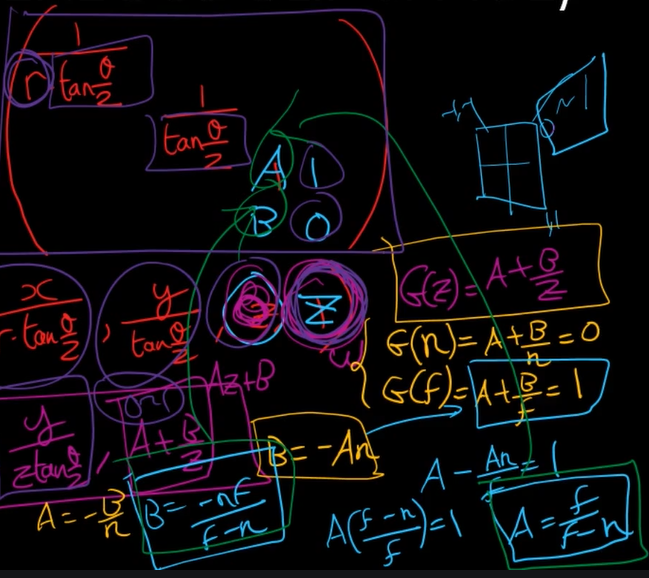 1 / (r tan θ/2)
1 / (tan θ/2)
A 1
B 0
-1,1
0 ~ 1
1,1
x / (r·tan θ/2) , y / (tan θ/2) , z
w
G(z) = A + B/z
G(n) = A + B/n = 0
G(f) = A + B/f = 1
Az+B
0~1
y / (z tan θ/2) , A + B/z
B = -An
A = -B/n
B = -nf / (f-n)
A - An/f = 1
A((f-n)/f) = 1
A = f / (f-n)